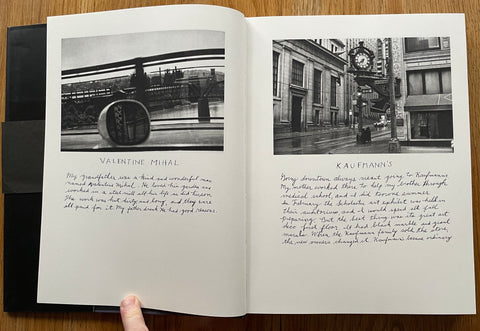 VALENTINE MIHAL
My grandfather was a kind and wonderful man
named Valentine Mihal. He loved his garden and
worked in a steel mill all his life as did his son.
The work was hot, dirty and long, and they were
all paid for it. My father drank. He had good reason.
KAUFMANN'S
Going downtown always meant going to Kaufmann's.
My mother worked there to help my brother through
medical school, and I did too one summer.
In February the Scholastic art exhibit was held in
their auditorium and I would spend all fall
preparing. But the best thing was its great art
deco first floor. It had black marble and grand
murals. When the Kaufmann family sold the store,
the new owners changed it. Kaufmann's became ordinary